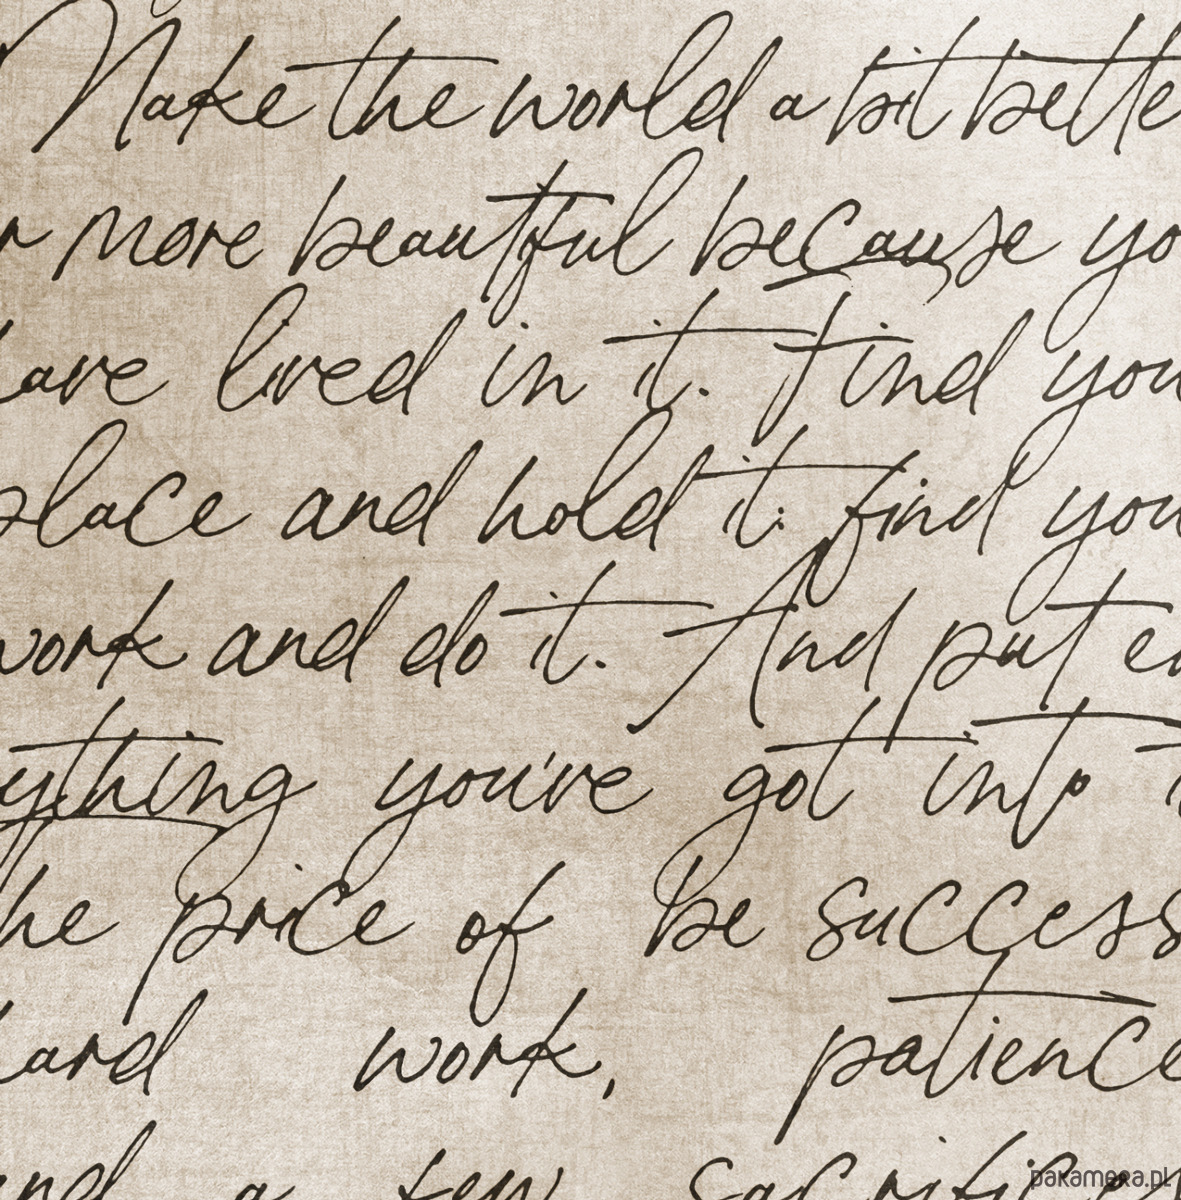 Make the world a bit bette
r more beautiful because yo
have lived in it. Find you
place and hold it. find you
work and do it. And put e
ything you've got into i
he price of be success
hard work, patience
and a few sacrifices
pakamera.pl